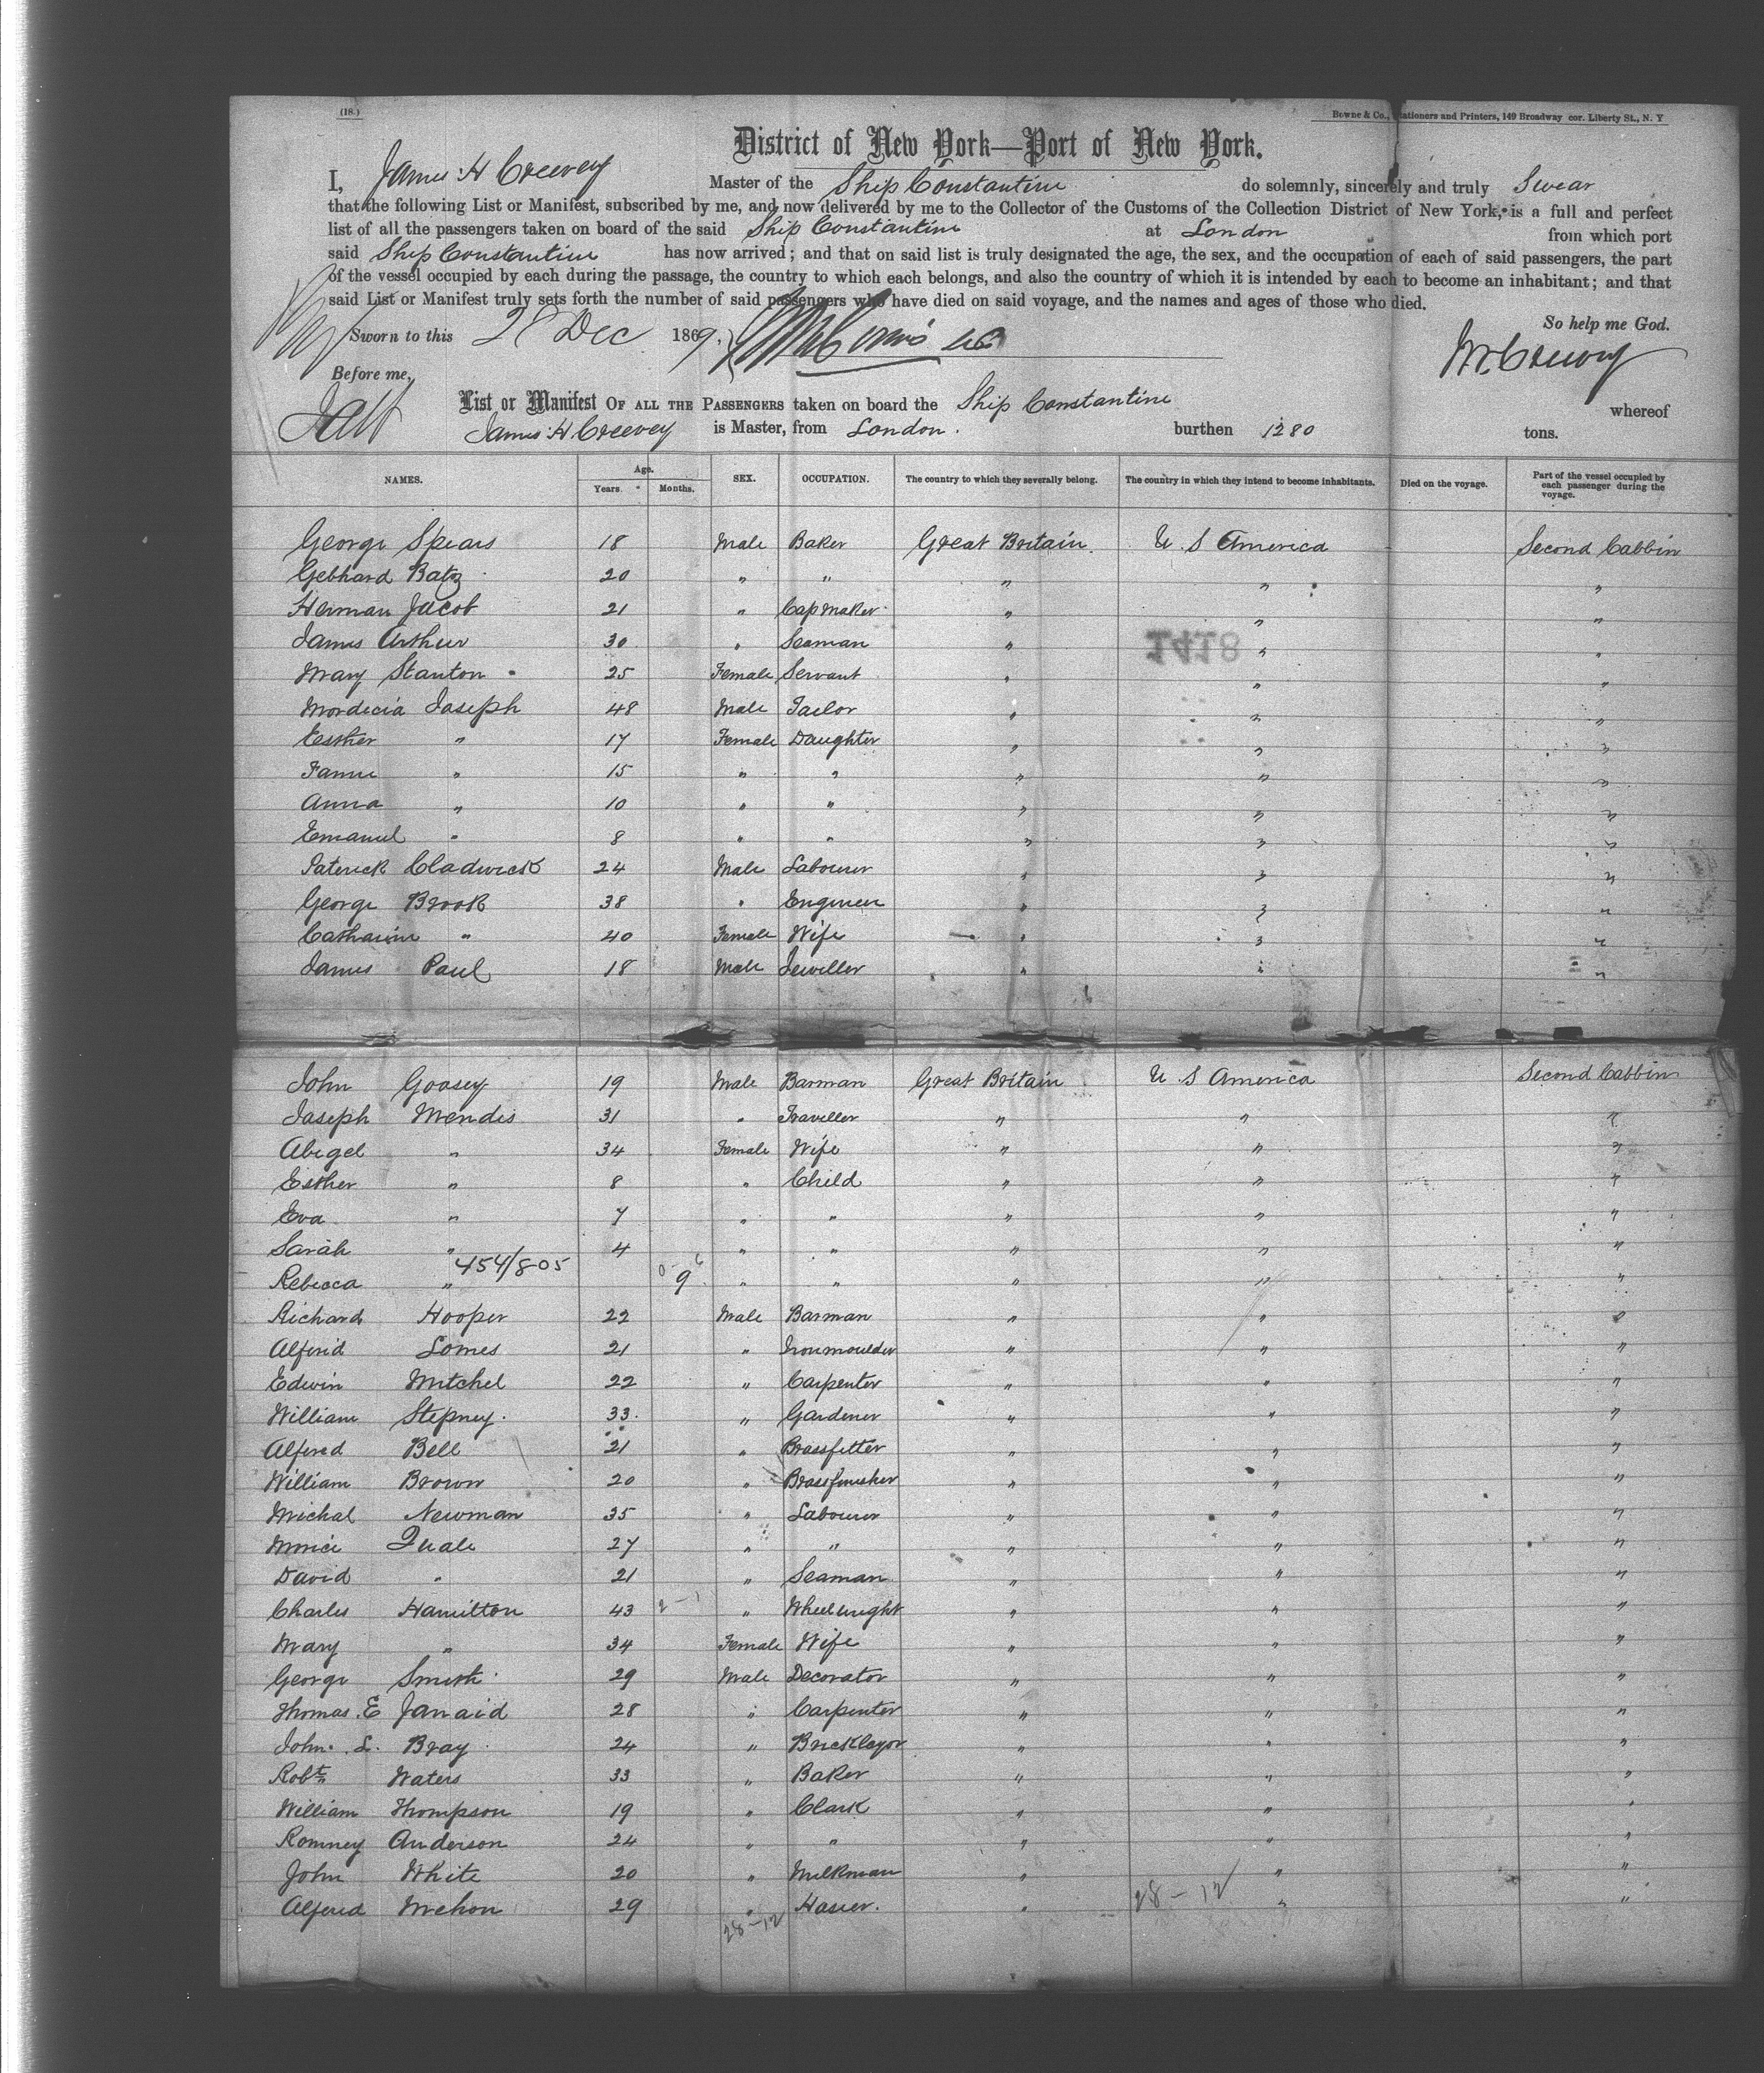 (18.)
Bowne & Co., Stationers and Printers, 149 Broadway cor. Liberty St., N. Y
District of New York—Port of New York.
I, James H Creevey Master of the Ship Constantine do solemnly, sincerely and truly Swear
that the following List or Manifest, subscribed by me, and now delivered by me to the Collector of the Customs of the Collection District of New York, is a full and perfect
list of all the passengers taken on board of the said Ship Constantine at London from which port
said Ship Constantine has now arrived; and that on said list is truly designated the age, the sex, and the occupation of each of said passengers, the part
of the vessel occupied by each during the passage, the country to which each belongs, and also the country of which it is intended by each to become an inhabitant; and that
said List or Manifest truly sets forth the number of said passengers who have died on said voyage, and the names and ages of those who died.
So help me God.
Sworn to this 28 Dec 1869.
Before me,
List or Manifest OF ALL THE PASSENGERS taken on board the Ship Constantine whereof
James H Creevey is Master, from London. burthen 1280 tons.
NAMES. Age. Years. Months. SEX. OCCUPATION. The country to which they severally belong. The country in which they intend to become inhabitants. Died on the voyage. Part of the vessel occupied by each passenger during the voyage.
George Spears 18 Male Baker Great Britain. U S America Second Cabbin
Gebhard Batz 20 " " " " "
Herman Jacob 21 " Cap maker " " "
James Arthur 30 " Seaman " " "
1418
Mary Stanton 25 Female Servant " " "
Mordecia Joseph 48 Male Tailor " " "
Eesther " 17 Female Daughter " " "
Fanni " 15 " " " " "
Anna " 10 " " " " "
Emanuel " 8 " " " " "
Paterick Cladwick 24 Male Labourer " " "
George Brook 38 " Engineer " " "
Catharine " 40 Female Wife " " "
James Paul 18 Male Jewiller " " "
John Goosey 19 Male Barman Great Britain U S America Second Cabbin
Joseph Mendis 31 " Traveller " " "
Abigel " 34 Female Wife " " "
Esther " 8 " Child " " "
Eva " 7 " " " " "
Sarah " 4 " " " " "
454/805
Rebecca " 9 " " " " "
Richard Hooper 22 Male Barman " " "
Alfrid Lomes 21 " Ironmoulder " " "
Edwin Mitchel 22 " Carpenter " " "
William Stepney. 33. " Gardener " " "
Alfred Bell 21 " Brassfitter " " "
William Brown 20 " Brassfinisher " " "
Michal Newman 35 " Labourer " " "
Morice Quale 27 " " " " "
David " 21 " Seaman " " "
Charles Hamilton 43 " Wheelwright " " "
Mary " 34 Female Wife " " "
George Smith 29 Male Decorator " " "
Thomas. E Janaid 28 " Carpenter " " "
John. L. Bray 24 " Bricklayor " " "
Robt Waters 33 " Baker " " "
William Thompson 19 " Clark " " "
Romney Anderson 24 " " " " "
John White 20 " Milkman " " "
Alfred Mehon 29 " Hasier. " " "
28-12 28-12